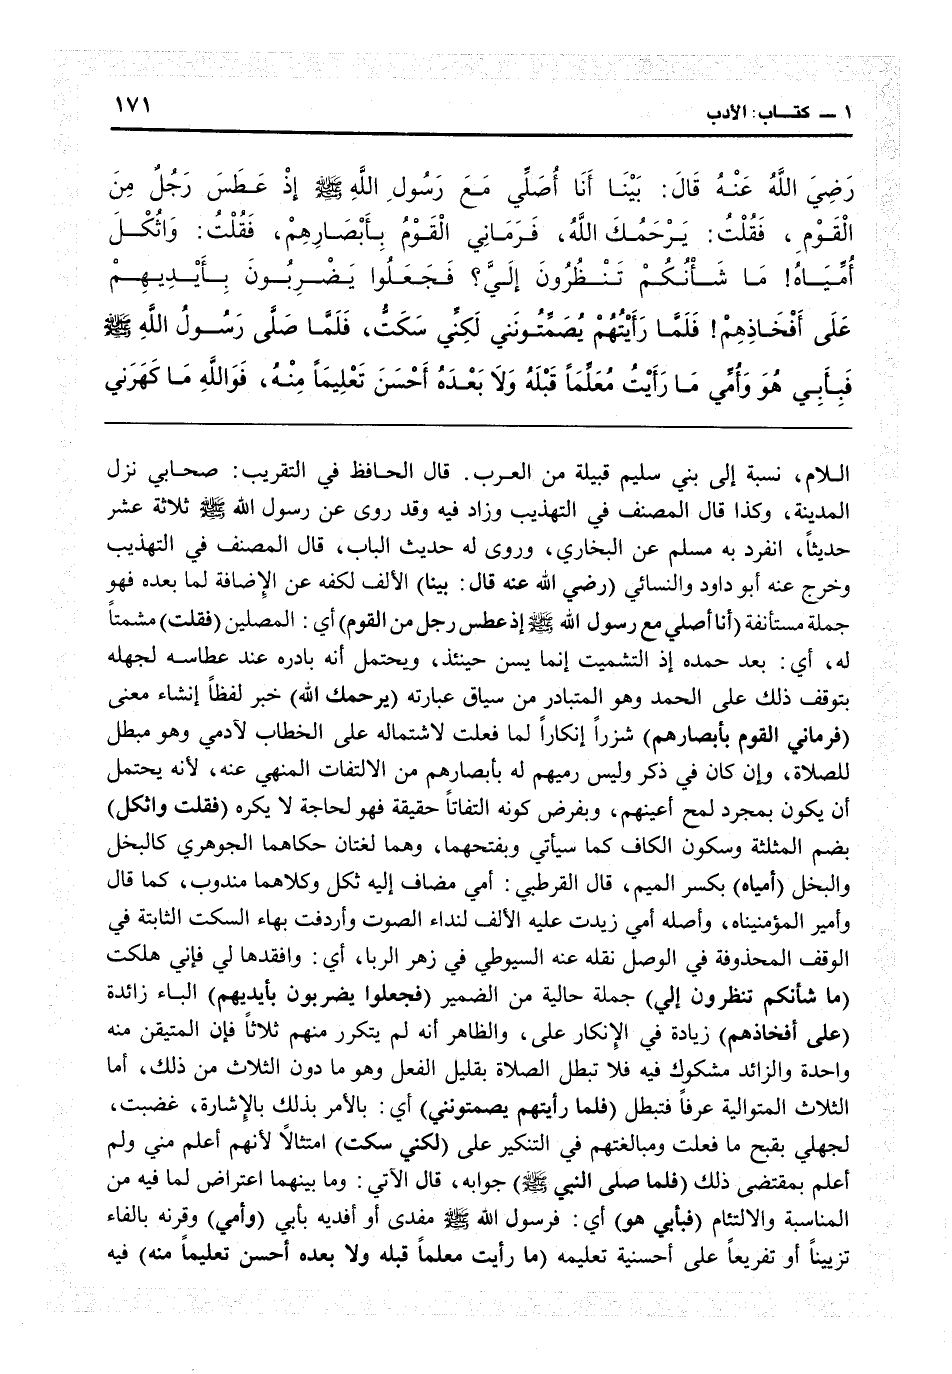 ١ ــ كتـــاب: الأدب
١٧١
رَضِيَ اللَّهُ عَنْهُ قَالَ: بَيْنَـا أَنَا أُصَلِّي مَـعَ رَسُولِ اللَّهِ ﷺ إِذْ عَـطَسَ رَجُلٌ مِنَ
الْقَـوْمِ، فَقُلْتُ: يَـرْحَمُـكَ اللَّهُ، فَـرَمَـانِي الْقَـوْمُ بِـأَبْصَـارِهِمْ، فَقُلْتُ: وَاثُكْـلَ
أُمِّيَـاهُ! مَـا شَـأْنُكُـمْ تَـنْـظُرُونَ إِلَيَّ؟ فَـجَعَلُوا يَـضْـرِبُـونَ بِـأَيْـدِيهِـمْ
عَلَى أَفْخَـاذِهِمْ! فَلَمَّـا رَأَيْتُهُمْ يُصَمِّتُـونَنِي لَكِنِّي سَكَتُّ، فَلَمَّـا صَلَّى رَسُـولُ اللَّهِ ﷺ
فَبِـأَبِـي هُوَ وَأُمِّي مَـا رَأَيْتُ مُعَلِّمَاً قَبْلَهُ وَلاَ بَعْـدَهُ أَحْسَنَ تَعْلِيمَاً مِنْـهُ، فَوَاللَّهِ مَـا كَهَرَنِي
الـلام، نسبة إلى بني سليم قبيلة من العرب. قال الحافظ في التقريب: صحابي نزل
المدينة، وكذا قال المصنف في التهذيب وزاد فيه وقد روى عن رسول الله ﷺ ثلاثة عشر
حديثاً، انفرد به مسلم عن البخاري، وروى له حديث الباب، قال المصنف في التهذيب
وخرج عنه أبو داود والنسائي (رضي الله عنه قال: بينا) الألف لكفه عن الإِضافة لما بعده فهو
جملة مستأنفة (أنا أصلي مع رسول الله ﷺ إذ عطس رجل من القوم) أي: المصلين (فقلت) مشمتاً
له، أي: بعد حمده إذ التشميت إنما يسن حينئذ، ويحتمل أنه بادره عند عطاسه لجهله
بتوقف ذلك على الحمد وهو المتبادر من سياق عبارته (يرحمك الله) خبر لفظاً إنشاء معنى
(فرماني القوم بأبصارهم) شزراً إنكاراً لما فعلت لاشتماله على الخطاب لآدمي وهو مبطل
للصلاة، وإن كان في ذكر وليس رميهم له بأبصارهم من الالتفات المنهي عنه، لأنه يحتمل
أن يكون بمجرد لمح أعينهم، وبفرض كونه التفاتاً حقيقة فهو لحاجة لا يكره (فقلت واثكل)
بضم المثلثة وسكون الكاف كما سيأتي وبفتحهما، وهما لغتان حكاهما الجوهري كالبخل
والبخل (أمياه) بكسر الميم، قال القرطبي: أمي مضاف إليه ثكل وكلاهما مندوب، كما قال
وأمير المؤمنيناه، وأصله أمي زيدت عليه الألف لنداء الصوت وأردفت بهاء السكت الثابتة في
الوقف المحذوفة في الوصل نقله عنه السيوطي في زهر الربا، أي: وافقدها لي فإني هلكت
(ما شأنكم تنظرون إلي) جملة حالية من الضمير (فجعلوا يضربون بأيديهم) الباء زائدة
(على أفخاذهم) زيادة في الإِنكار على، والظاهر أنه لم يتكرر منهم ثلاثاً فإن المتيقن منه
واحدة والزائد مشكوك فيه فلا تبطل الصلاة بقليل الفعل وهو ما دون الثلاث من ذلك، أما
الثلاث المتوالية عرفاً فتبطل (فلما رأيتهم يصمتونني) أي: بالأمر بذلك بالإِشارة، غضبت،
لجهلي بقبح ما فعلت ومبالغتهم في التنكير على (لكني سكت) امتثالاً لأنهم أعلم مني ولم
أعلم بمقتضى ذلك (فلما صلى النبي ﷺ) جوابه، قال الآتي: وما بينهما اعتراض لما فيه من
المناسبة والالتئام (فبأبي هو) أي: فرسول الله ﷺ مفدى أو أفديه بأبي (وأمي) وقرنه بالفاء
تزييناً أو تفريعاً على أحسنية تعليمه (ما رأيت معلماً قبله ولا بعده أحسن تعليماً منه) فيه